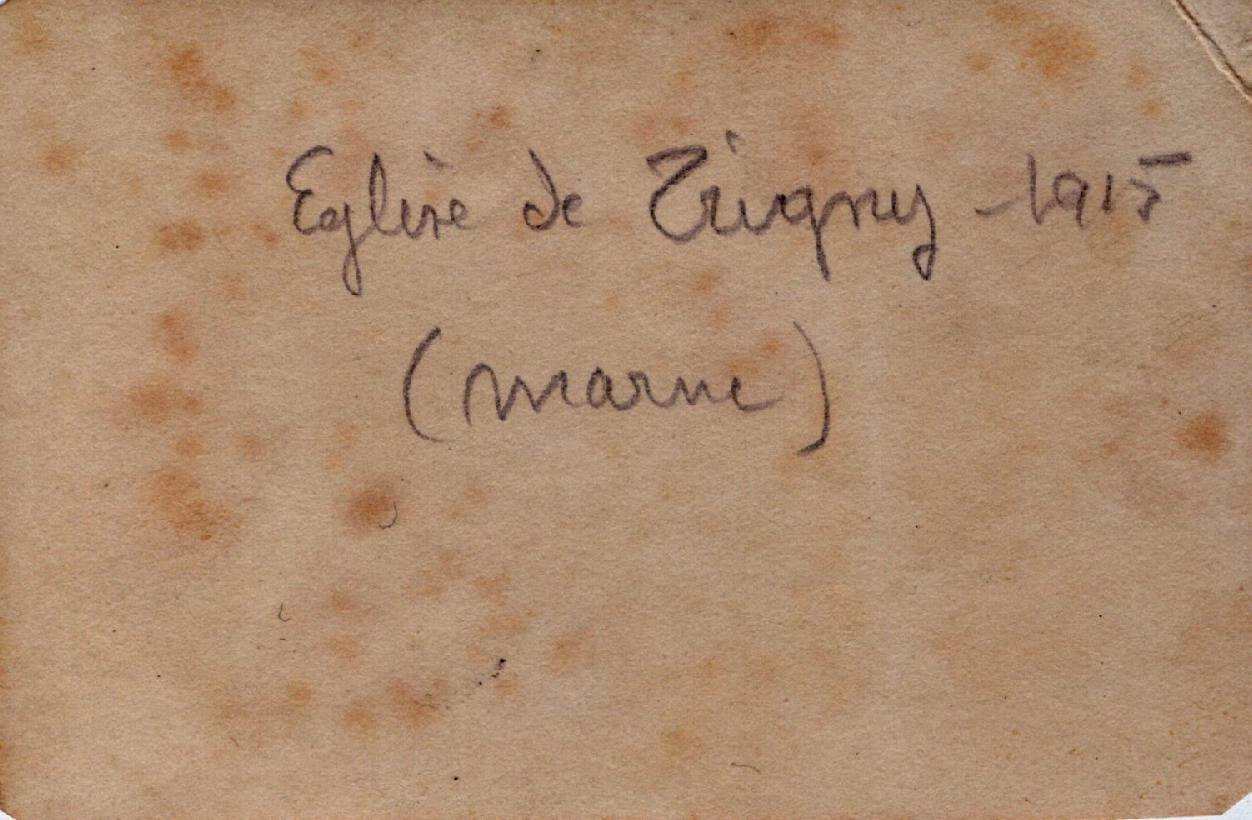 Eglise de Trigny - 1915
(Marne)